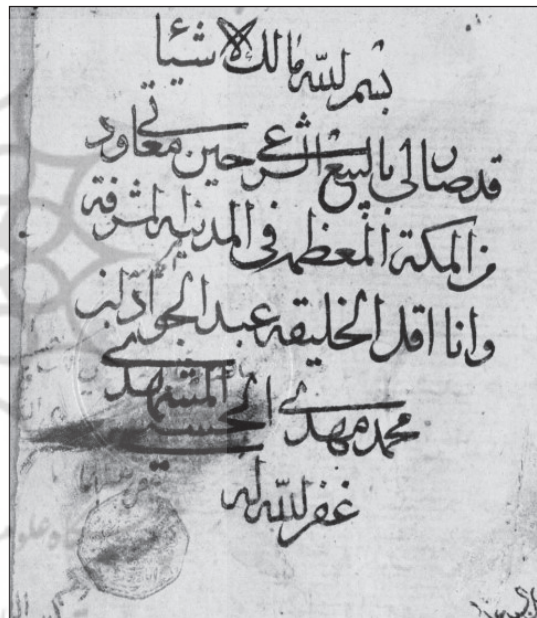 بسم الله مالك الاشيا
قد صار لي بالبيع الشرعي حين معاودتي
من المكة المعظمة في المدينة المشرفة
وانا اقل الخليقه عبد الجواد ابن
محمد مهدي الحسيني المشهدي
غفر الله له